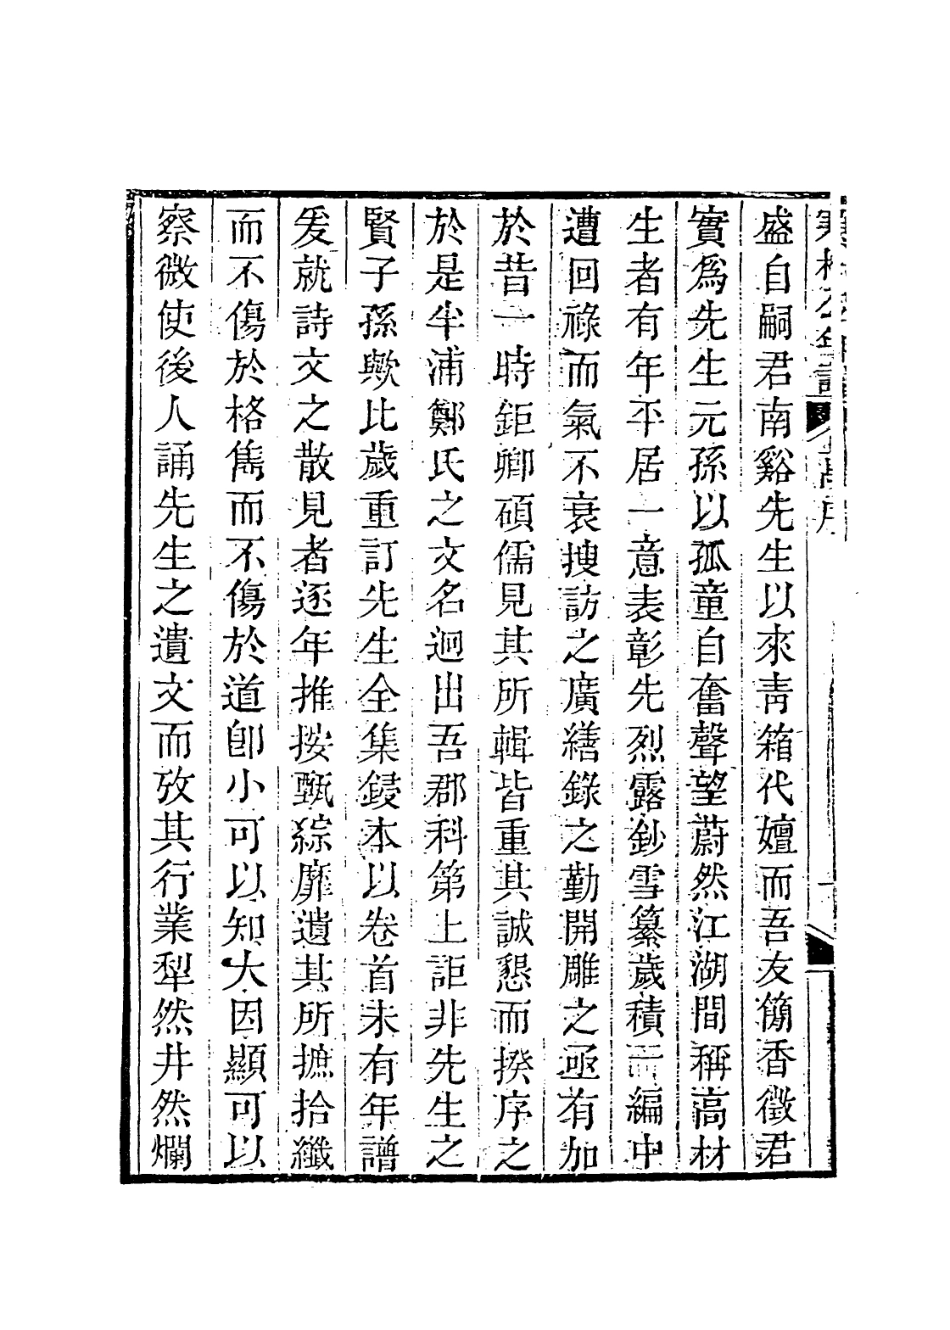 盛自嗣君南谿先生以來靑箱代嬗而吾友簡香徵君
實爲先生元孫以孤童自奮聲望蔚然江湖間稱高材
生者有年平居一意表彰先烈露鈔雪纂歲積而編中
遭回祿而氣不衰搜訪之廣繕錄之勤開雕之亟有加
於昔一時鉅卿碩儒見其所輯皆重其誠懇而揆序之
於是半浦鄭氏之文名迥出吾郡科第上詎非先生之
賢子孫歟比歲重訂先生全集鋟本以卷首未有年譜
爰就詩文之散見者逐年推按甄綜靡遺其所摭拾纖
而不傷於格雋而不傷於道卽小可以知大因顯可以
察微使後人誦先生之遺文而攷其行業犁然井然爛